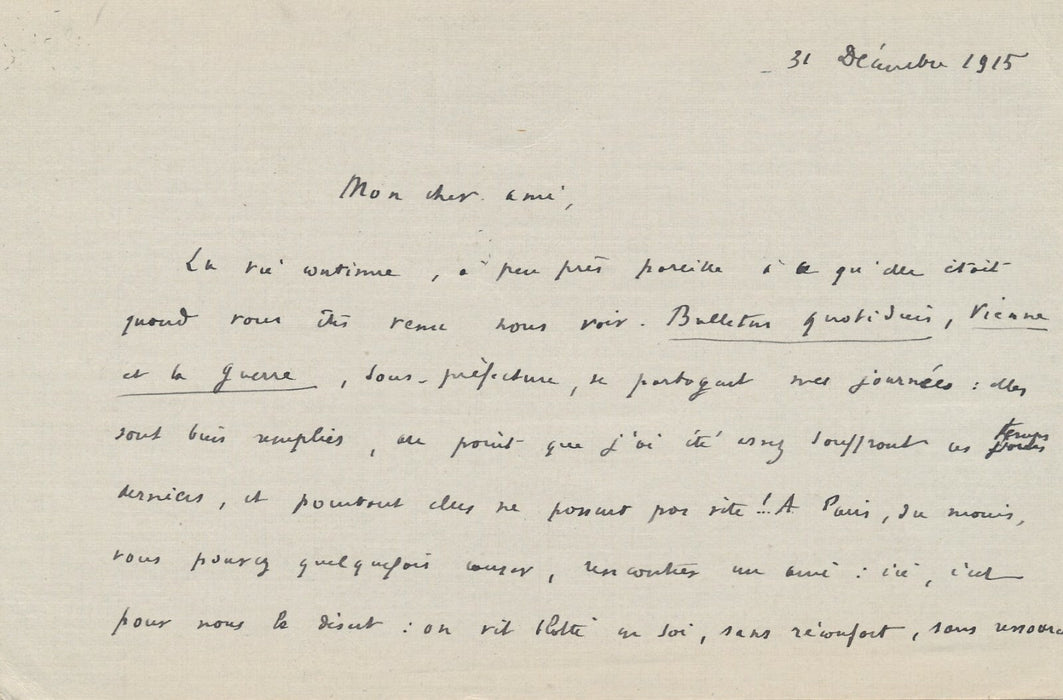 31 Décembre 1915
Mon cher ami,
La vie continue, à peu près pareille à ce qu'elle était
quand vous êtes venu nous voir. Bulletins quotidiens, Vienne
et la guerre, sous-préfecture, se partagent mes journées : elles
sont bien remplies, au point que j'ai été assez souffrant ces temps
derniers, et pourtant elles ne passent pas vite !.. A Paris, du moins,
vous pouvez quelquefois causer, rencontrer un ami : ici, c'est
pour nous le désert : on vit blotti en soi, sans réconfort, sans